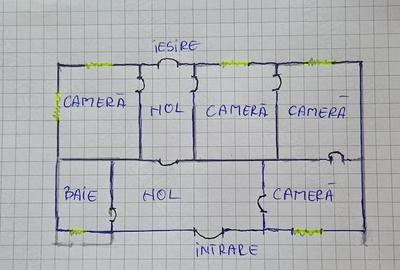 IEȘIRE
CAMERĂ
HOL
CAMERĂ
CAMERĂ
BAIE
HOL
CAMERĂ
INTRARE